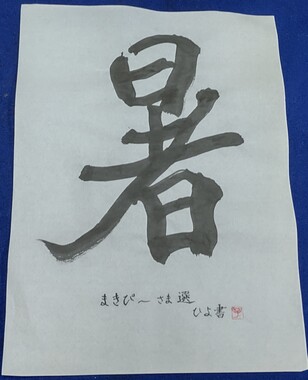 暑
まきぴ〜さま選
ひよ書